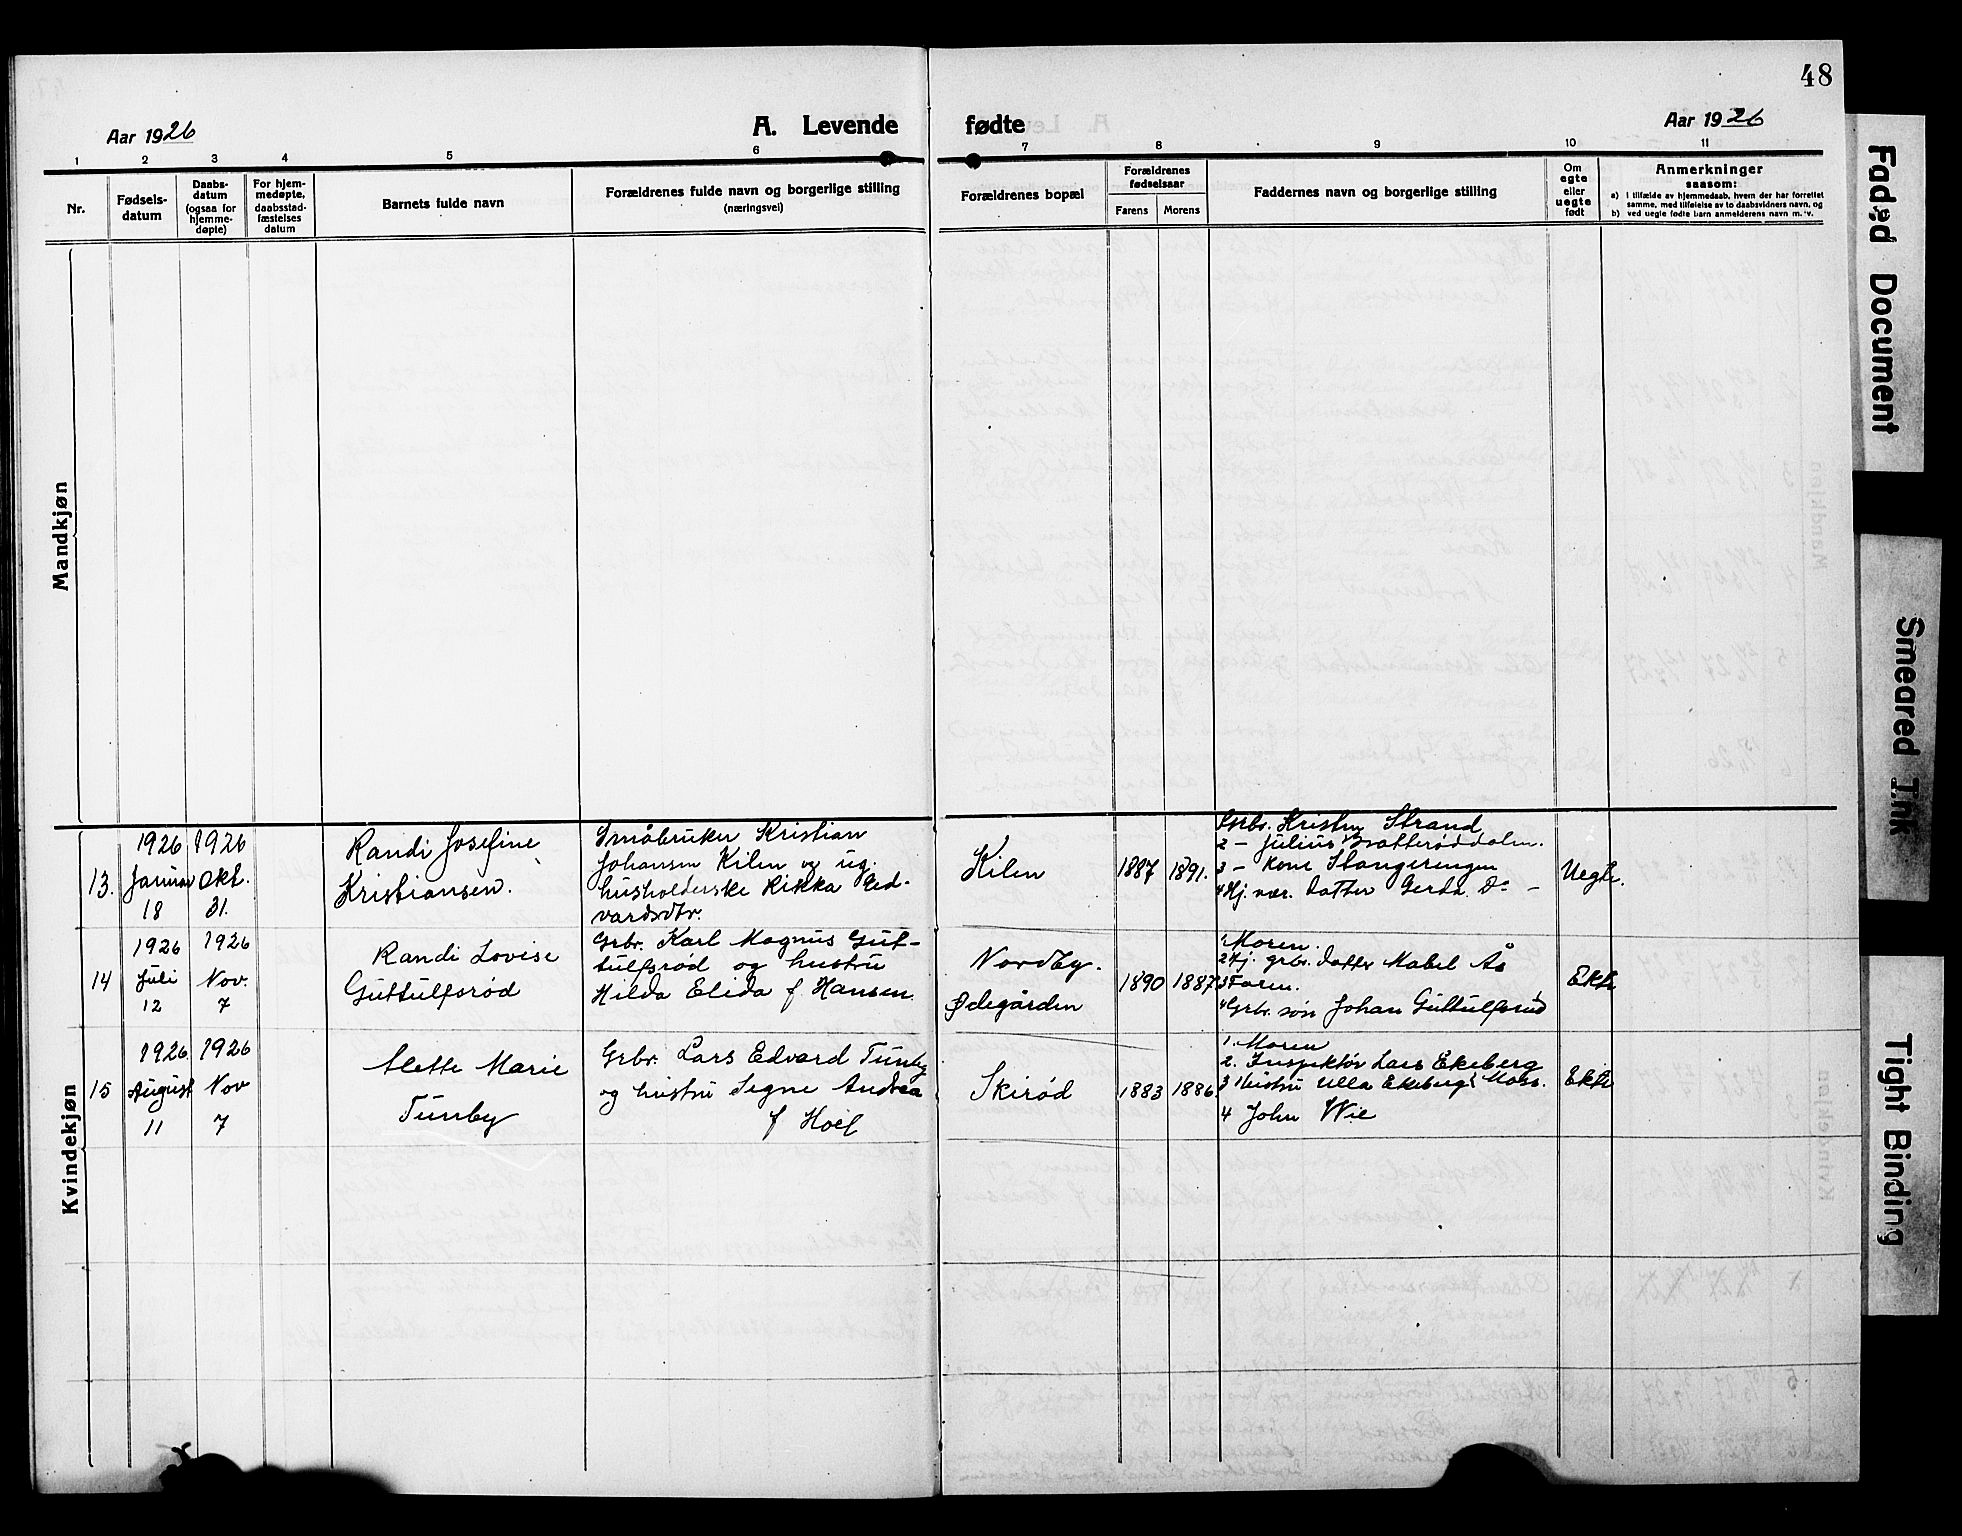 48
Aar 1926
A. Levende fødte
Aar 1926
1 2 3 4 5 6 7 8 9 10 11
Nr.
Fødsels-
datum
Daabs-
datum
(ogsaa for
hjemme-
døpte)
For hjem-
medøpte,
daabsstad-
fæstelses
datum
Barnets fulde navn
Forældrenes fulde navn og borgerlige stilling
(næringsvei)
Forældrenes bopæl
Forældrenes
fødselsaar
Farens Morens
Faddernes navn og borgerlige stilling
Om
egte
eller
uegte
født
Anmerkninger
saasom:
a) i tilfælde av hjemmedaab, hvem der har forrettet
samme, med tilføielse av to daabsvidners navn, og
b) ved uegte fødte barn anmelderens navn m. v.
Mandkjøn
Kvindekjøn
13.
1926
Januar
18
1926
Okt.
31.
Randi Josefine
Kristiansen.
Småbruker Kristian
Johansen Kilen og ug.
husholderske Rikka Ed-
vardsdtr.
Kilen
1887
1891.
Grbr. Kristny Strand
2 - Julius Bratterøddalen.
3 - kone Stangeringen
4 Hj. vær. datter Gerda Do -
Uegte.
14
1926
Juli
12
1926
Nov.
7
Randi Lovise
Guttulfsrød
Grbr. Karl Magnus Gut-
tulfsrød og hustru
Hilda Elida f. Hansen
Nordby.
Ødegården
1890
1887
1 Moren.
2 Hj. grbr. datter Mabel Ås
3 Faren.
4 Grbr. søn Johan Guttulfsrud
Ekte
15
1926.
August
11
1926
Nov
7
Mette Marie
Tunby
Grbr. Lars Edvard Tunby
og hustru Signe Andrea
f Hoel
Skirød
1883
1886.
1. Moren
2. Inspektør Lars Ekeberg
3 Hustru Ulla Ekeberg, Moss.
4 John Wie
Ekte
Faded Document
Smeared Ink
Tight Binding